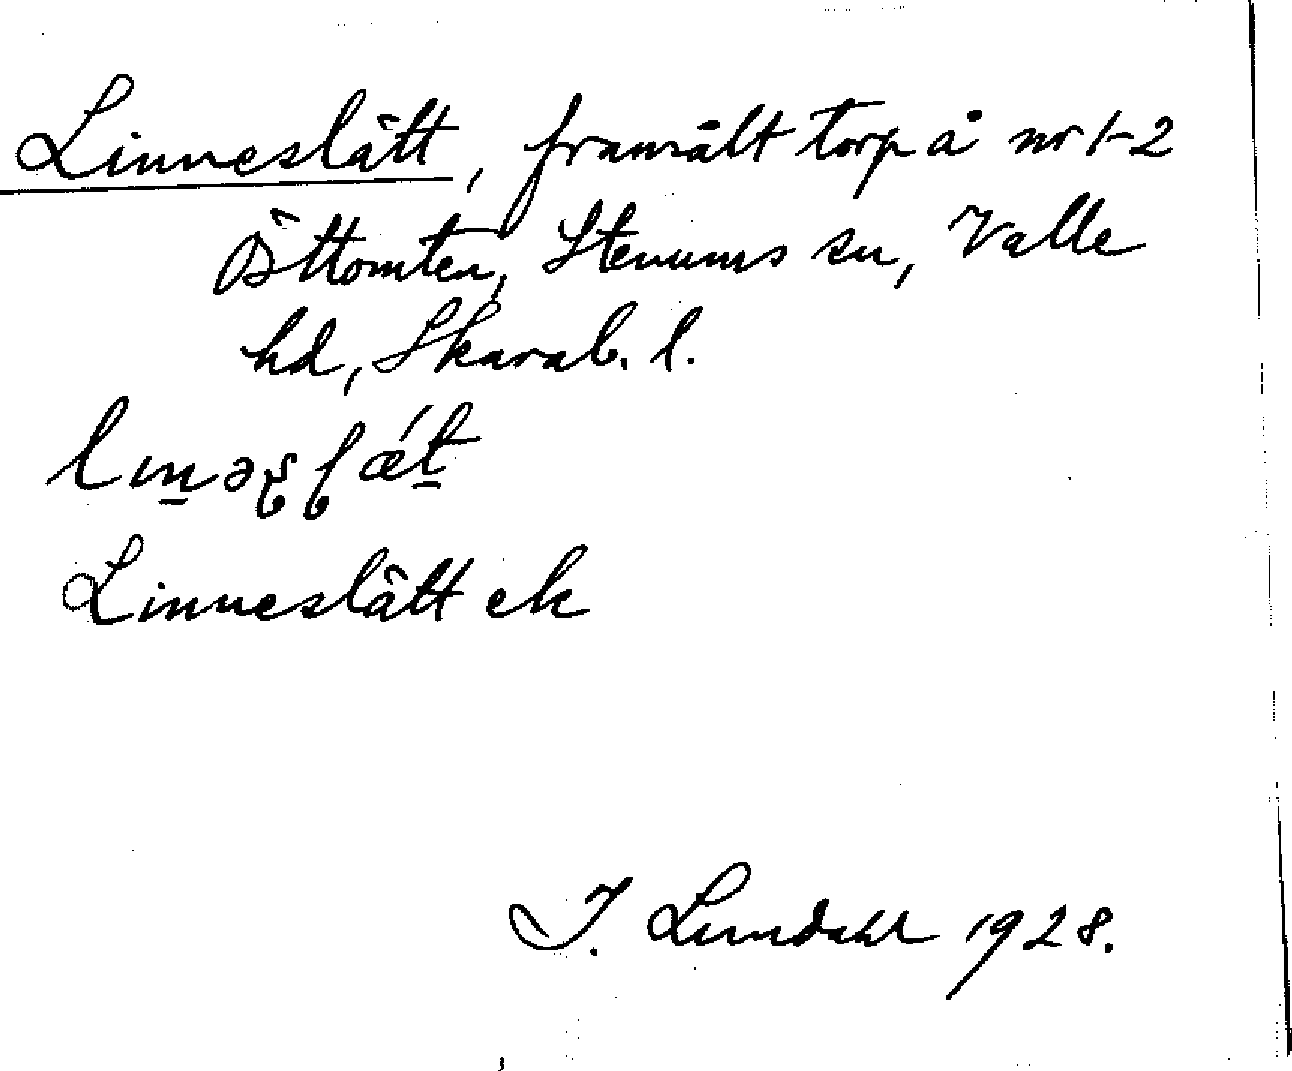 Linneslätt, frams̄ält torp å nr 1-2
Öttomten, Stenums sn, Valle
hd, Skarab. l.
Linneslätt ek
I. Lundahl 1928.